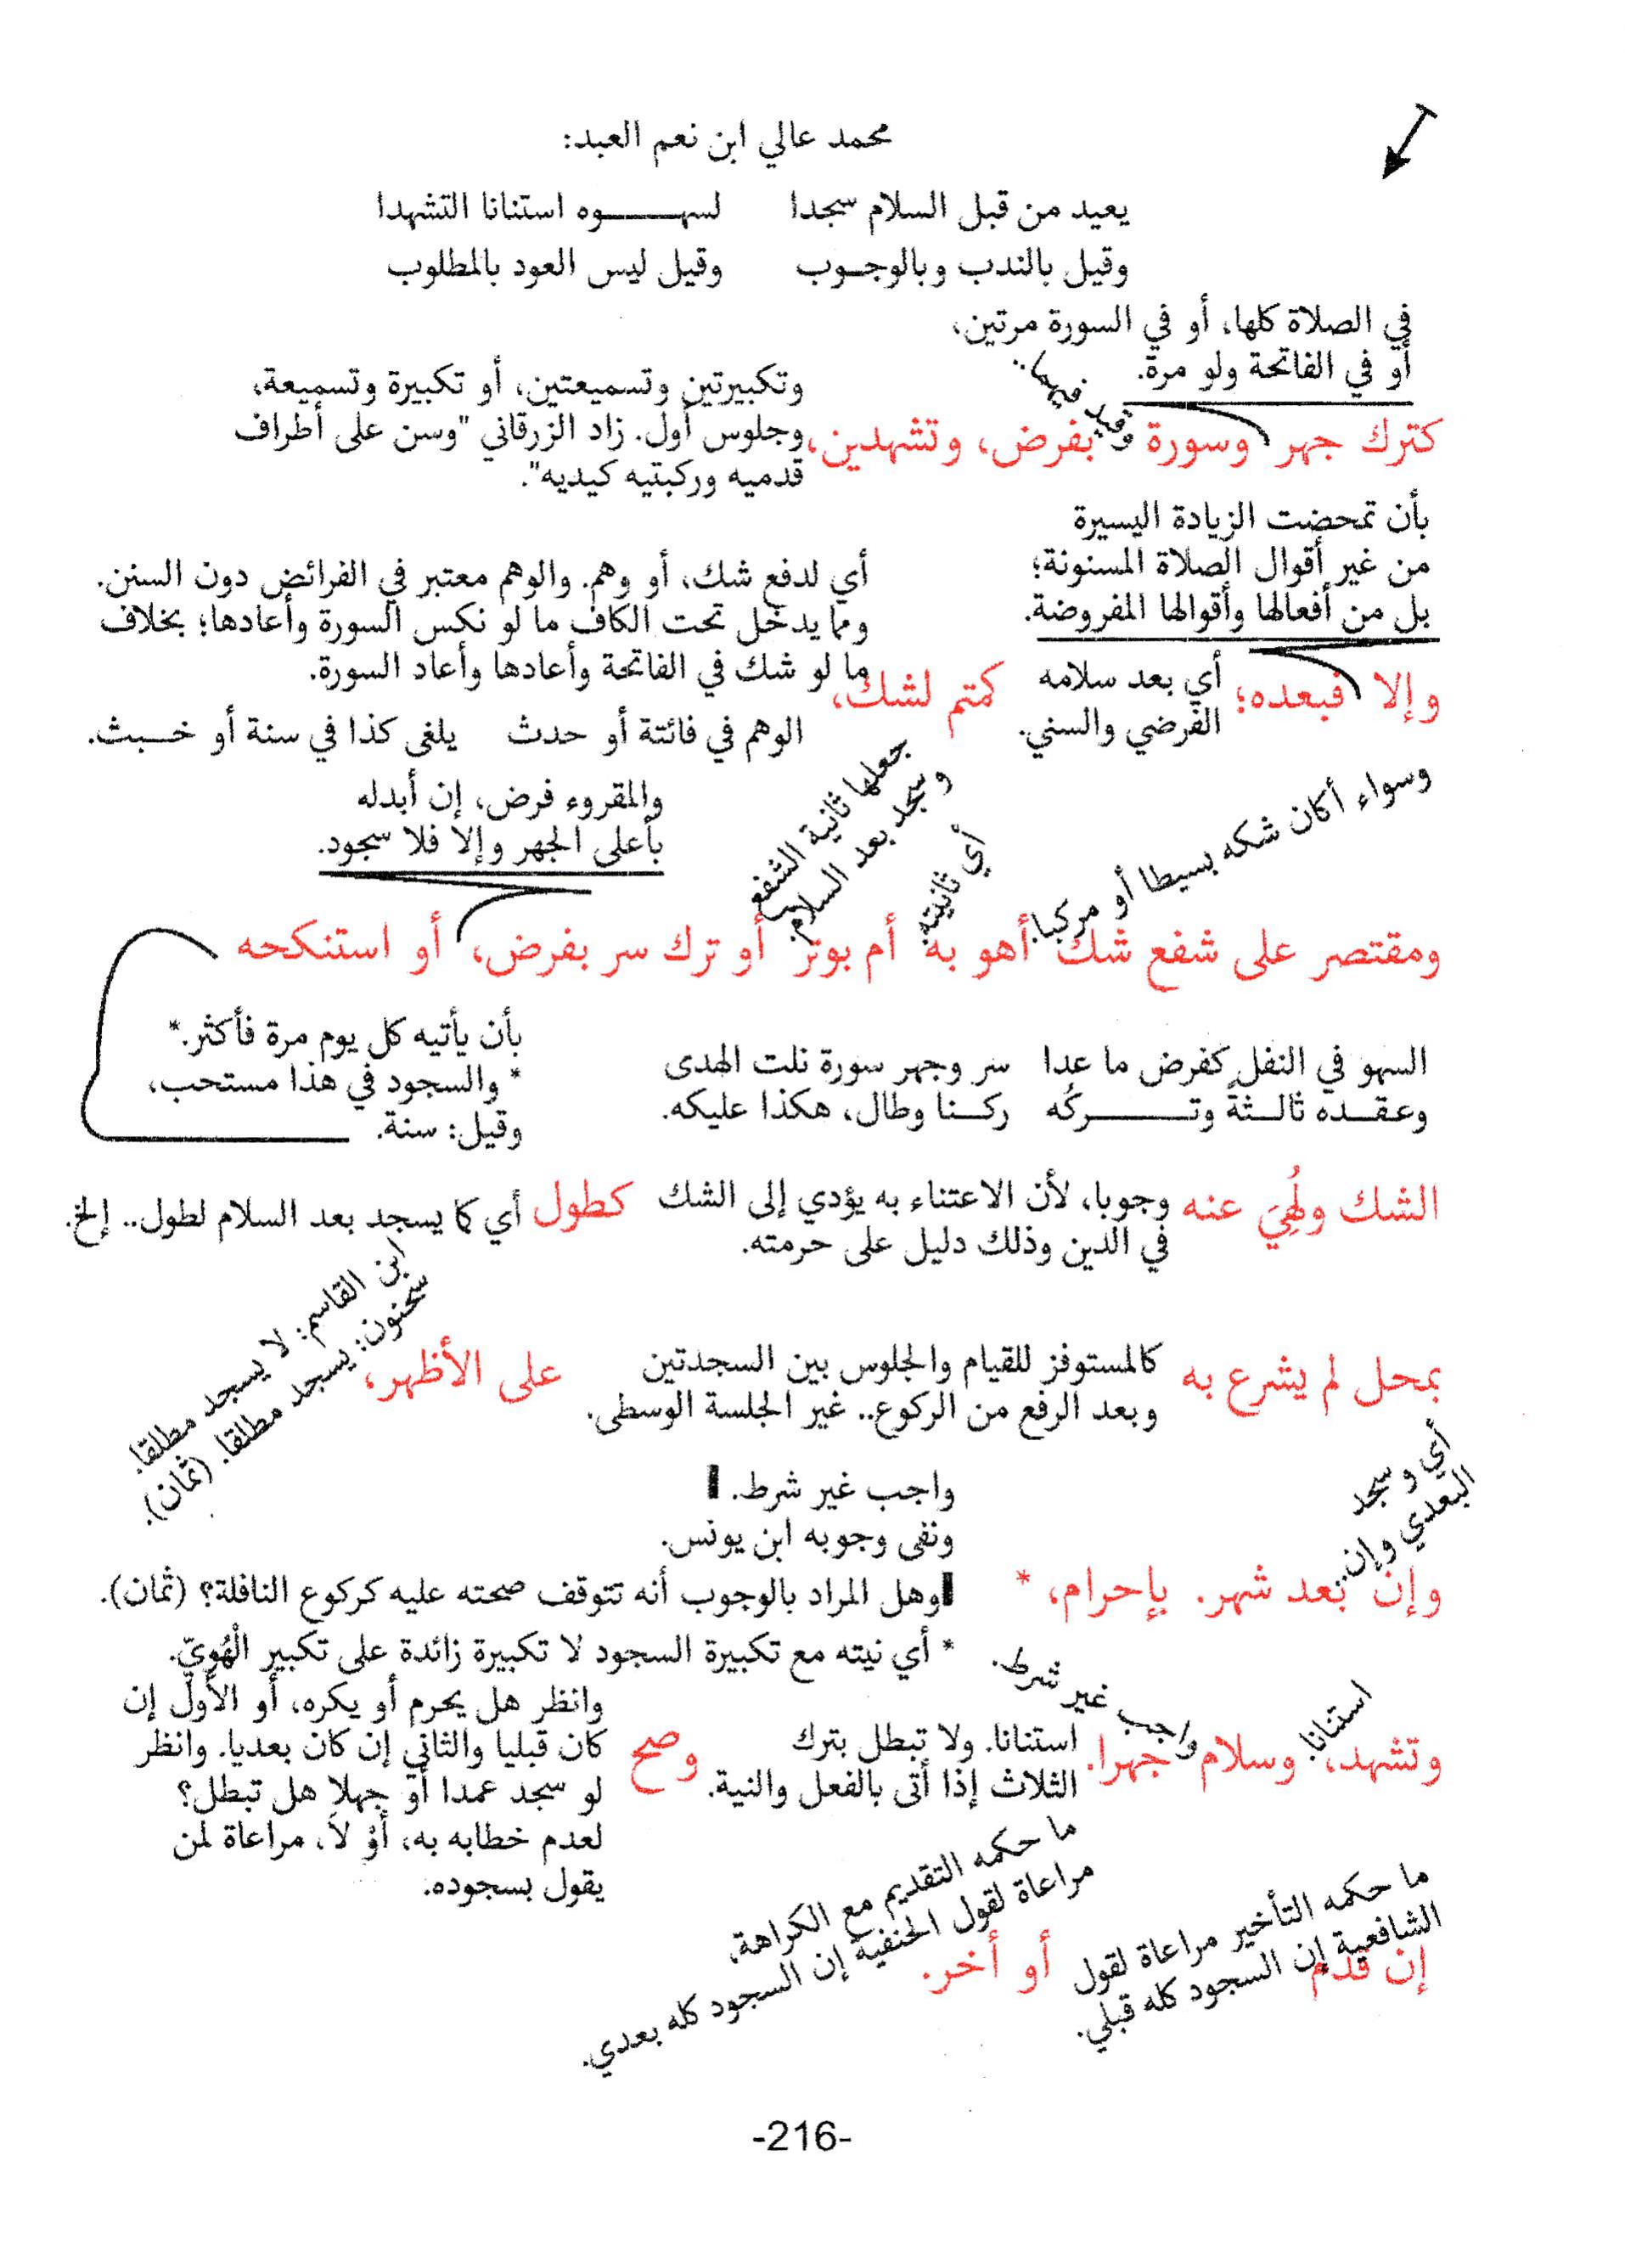 محمد عالي ابن نعم العبد:
يعيد من قبل السلام سجدا لسهـــــوه استنانا التشهدا
وقيل بالندب وبالوجـوب وقيل ليس العود بالمطلوب
في الصلاة كلها، أو في السورة مرتين،
أو في الفاتحة ولو مرة.
وتكبيرتين وتسميعتين، أو تكبيرة وتسميعة،
وجلوس أول. زاد الزرقاني "وسن على أطراف
قدميه وركبتيه كيديه".
كترك جهر وسورة بفرض، وتشهدين،
وقيد فيهما.
بأن تمحضت الزيادة اليسيرة
من غير أقوال الصلاة المسنونة؛
بل من أفعالها وأقوالها المفروضة.
أي لدفع شك، أو وهم. والوهم معتبر في الفرائض دون السنن.
ومما يدخل تحت الكاف ما لو نكس السورة وأعادها؛ بخلاف
ما لو شك في الفاتحة وأعادها وأعاد السورة.
وإلا فبعده؛
أي بعد سلامه
الفرضي والسني.
كمتم لشك،
الوهم في فائتة أو حدث يلغى كذا في سنة أو خـبث.
وسواء أكان شكه بسيطا أو مركبا.
أي ثانيته.
جعلها ثانية الشفع
وسجد بعد السلام.
والمقروء فرض، إن أبدله
بأعلى الجهر وإلا فلا سجود.
ومقتصر على شفع شك أهو به أم بوتر أو ترك سر بفرض، أو استنكحه
بأن يأتيه كل يوم مرة فأكثر.*
* والسجود في هذا مستحب،
وقيل: سنة.
السهو في النفل كفرض ما عدا سر وجهر سورة نلت الهدى
وعقـده ثالـثةً وتـــــركُه ركـنا وطال، هكذا عليكه.
الشك ولُهِيَ عنه
وجوبا، لأن الاعتناء به يؤدي إلى الشك
في الدين وذلك دليل على حرمته.
كطول
أي كما يسجد بعد السلام لطول.. إلخ.
بمحل لم يشرع به
كالمستوفز للقيام والجلوس بين السجدتين
وبعد الرفع من الركوع.. غير الجلسة الوسطى.
على الأظهر،
ابن القاسم: لا يسجد مطلقا.
سحنون: يسجد مطلقا. (ثمان).
أي وسجد
البعدي وإن..
وإن بعد شهر. بإحرام، *
واجب غير شرط.
ونفى وجوبه ابن يونس.
وهل المراد بالوجوب أنه تتوقف صحته عليه كركوع النافلة؟ (ثمان).
* أي نيته مع تكبيرة السجود لا تكبيرة زائدة على تكبير الْهُوِيّ.
استنانا.
واجب غير شرط.
وتشهد، وسلام جهرا.
استنانا. ولا تبطل بترك
الثلاث إذا أتى بالفعل والنية.
وصح
وانظر هل يحرم أو يكره، أو الأول إن
كان قبليا والثاني إن كان بعديا. وانظر
لو سجد عمدا أو جهلا هل تبطل؟
لعدم خطابه به، أوْ لاَ، مراعاة لمن
يقول بسجوده.
إن قدم
ما حكمه التأخير مراعاة لقول
الشافعية إن السجود كله قبلي.
أو أخر.
ما حكمه التقديم مع الكراهة،
مراعاة لقول الحنفية إن السجود كله بعدي.
-216-